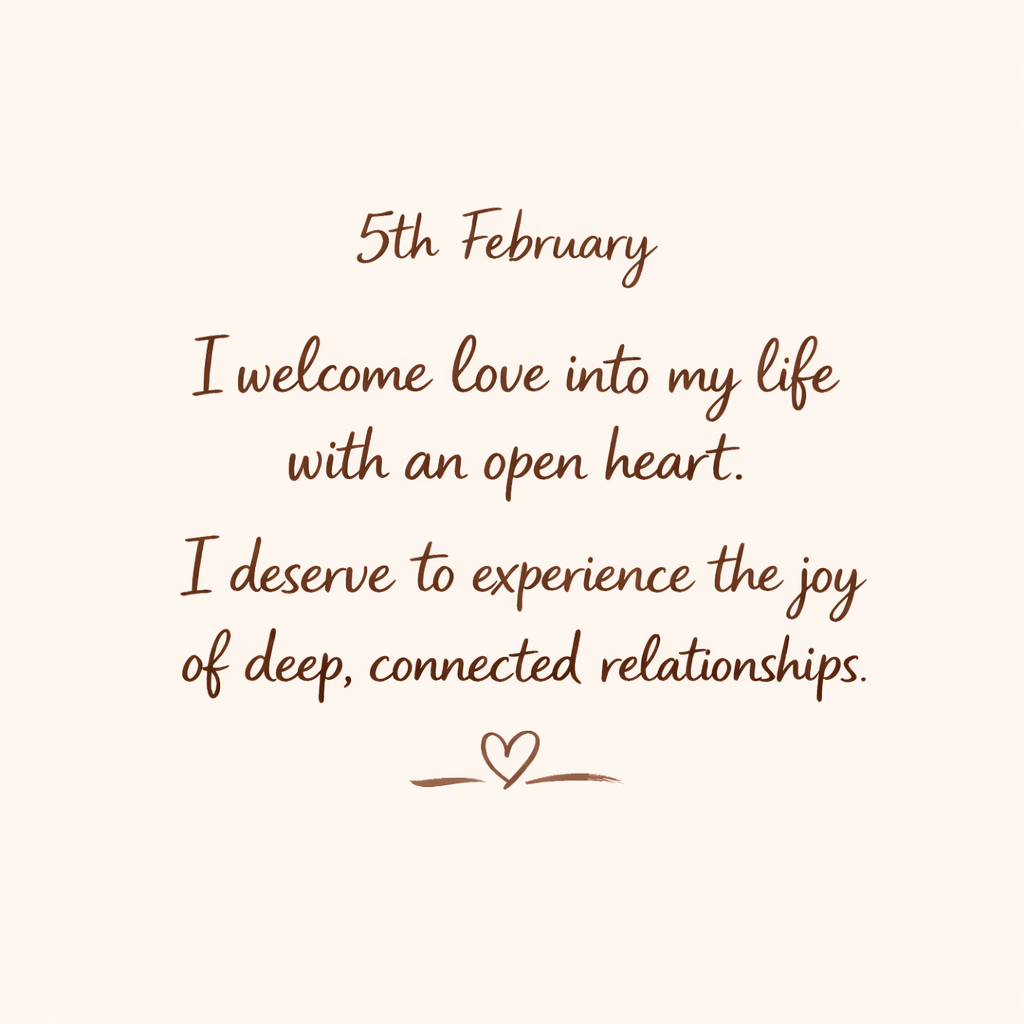 5th February
I welcome love into my life
with an open heart.
I deserve to experience the joy
of deep, connected relationships.